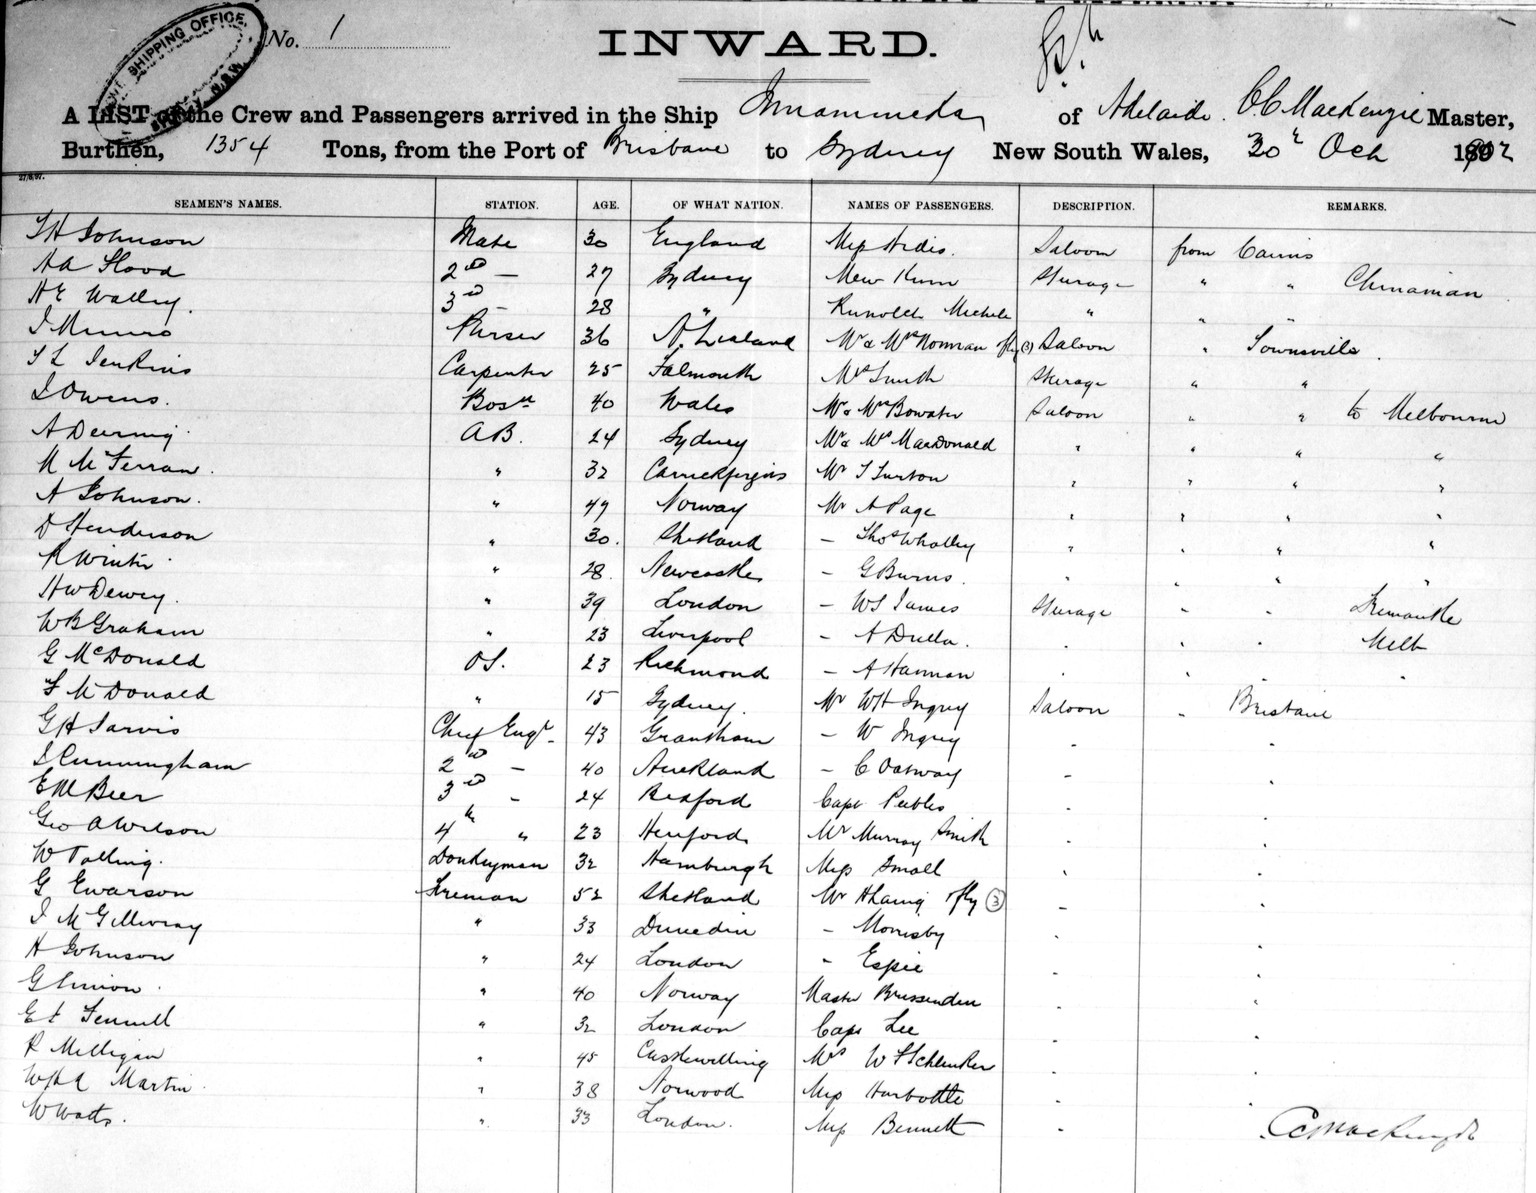 SHIPPING OFFICE
No. 1
INWARD.
A LIST of the Crew and Passengers arrived in the Ship Innamincka of Adelaide. C. C. MacKenzie Master,
Burthen, 1354 Tons, from the Port of Brisbane to Sydney New South Wales, 30 Oct 1902
27/8/97.
SEAMEN'S NAMES. STATION. AGE. OF WHAT NATION. NAMES OF PASSENGERS. DESCRIPTION. REMARKS.
Johnson Mate 30 England Miss Ardis. Saloon from Cairns
2nd — 27 Sydney Steerage " " Chinaman
3rd — 28 " " " "
J Munro Purser 36 N. Zealand Mr & Mrs Norman Saloon " Townsville.
Jenkins Carpenter 25 Falmouth Mrs Smith Steerage " "
J Owens. Bosn 40 Wales Mr & Mrs Bowater Saloon " " to Melbourne
A Deering. AB. 24 Sydney Mr & Mrs MacDonald " " " "
32 Carrickfergus Mr " " " "
A Johnson. " 47 Norway Mr A Page " " " "
D Henderson " 30. Shetland — Thos Whalley " " " "
R Winter " 28 Newcastle — G Burns. " " " "
H W Dewey. " 39 London — W S James Steerage " " Fremantle
W B Graham " 23 Liverpool — A Dulla. " " " Melb
G McDonald OS. 23 Richmond — A Harman " " " "
McDonald " 15 Sydney. Mr W H Ingrey Saloon " Brisbane
G H Jarvis Chief Engr 43 Grantham — W Ingrey " "
J Cunningham 2nd — 40 Auckland — C Oatway " "
E W Beer 3rd — 24 Bedford Capt Peebles " "
Geo A Wilson 4th " 23 Hereford Mr Murray Smith " "
W Donkeyman 32 Hamburgh Miss Small " "
G Ewarson Fireman 52 Shetland Mr (3) " "
J McGillivray " 33 Dunedin — Moresby " "
A Johnson " 24 London " Espie " "
G " 40 Norway Master Brissenden " "
Fennell " 32 London Capt Lee " "
R Milligan " 45 Castlewelling Mrs W Schlenker " "
Martin " 38 Norwood Miss Harbottle " "
W Watts. " 33 London. Miss Bennett "
C C MacKenzie